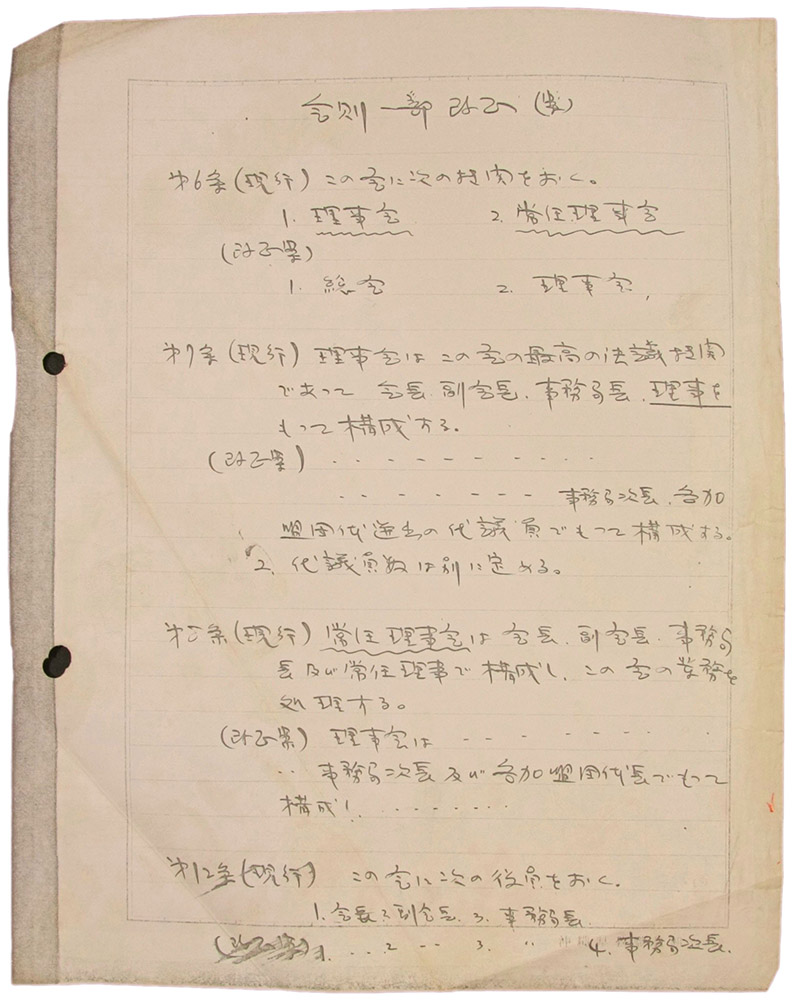 会則一部改正(案)
第6条(現行) この会に次の機関をおく。
1. 理事会 2. 常任理事会
(改正案)
1. 総会 2. 理事会、
第7条(現行) 理事会はこの会の最高の決議機関
であって 会長、副会長、事務局長、理事を
もって構成する。
(改正案) ‥ - - - - - ‥‥
‥ - - - - - - 事務局次長、各加
盟団体選出の代議員でもって構成する。
2. 代議員数は別に定める。
第8条(現行) 常任理事会は会長、副会長、事務局
長及び常任理事で構成し、この会の業務を
処理する。
(改正案) 理事会は ‥ - - ‥‥
‥ 事務局次長及び各加盟団体長でもって
構成し、‥‥‥‥
第12条(現行) この会に次の役員をおく。
1. 会長 2 副会長 3. 事務局長
(改正案) 1. ‥‥ 2 ‥‥ 3. 〃 4. 事務局次長.